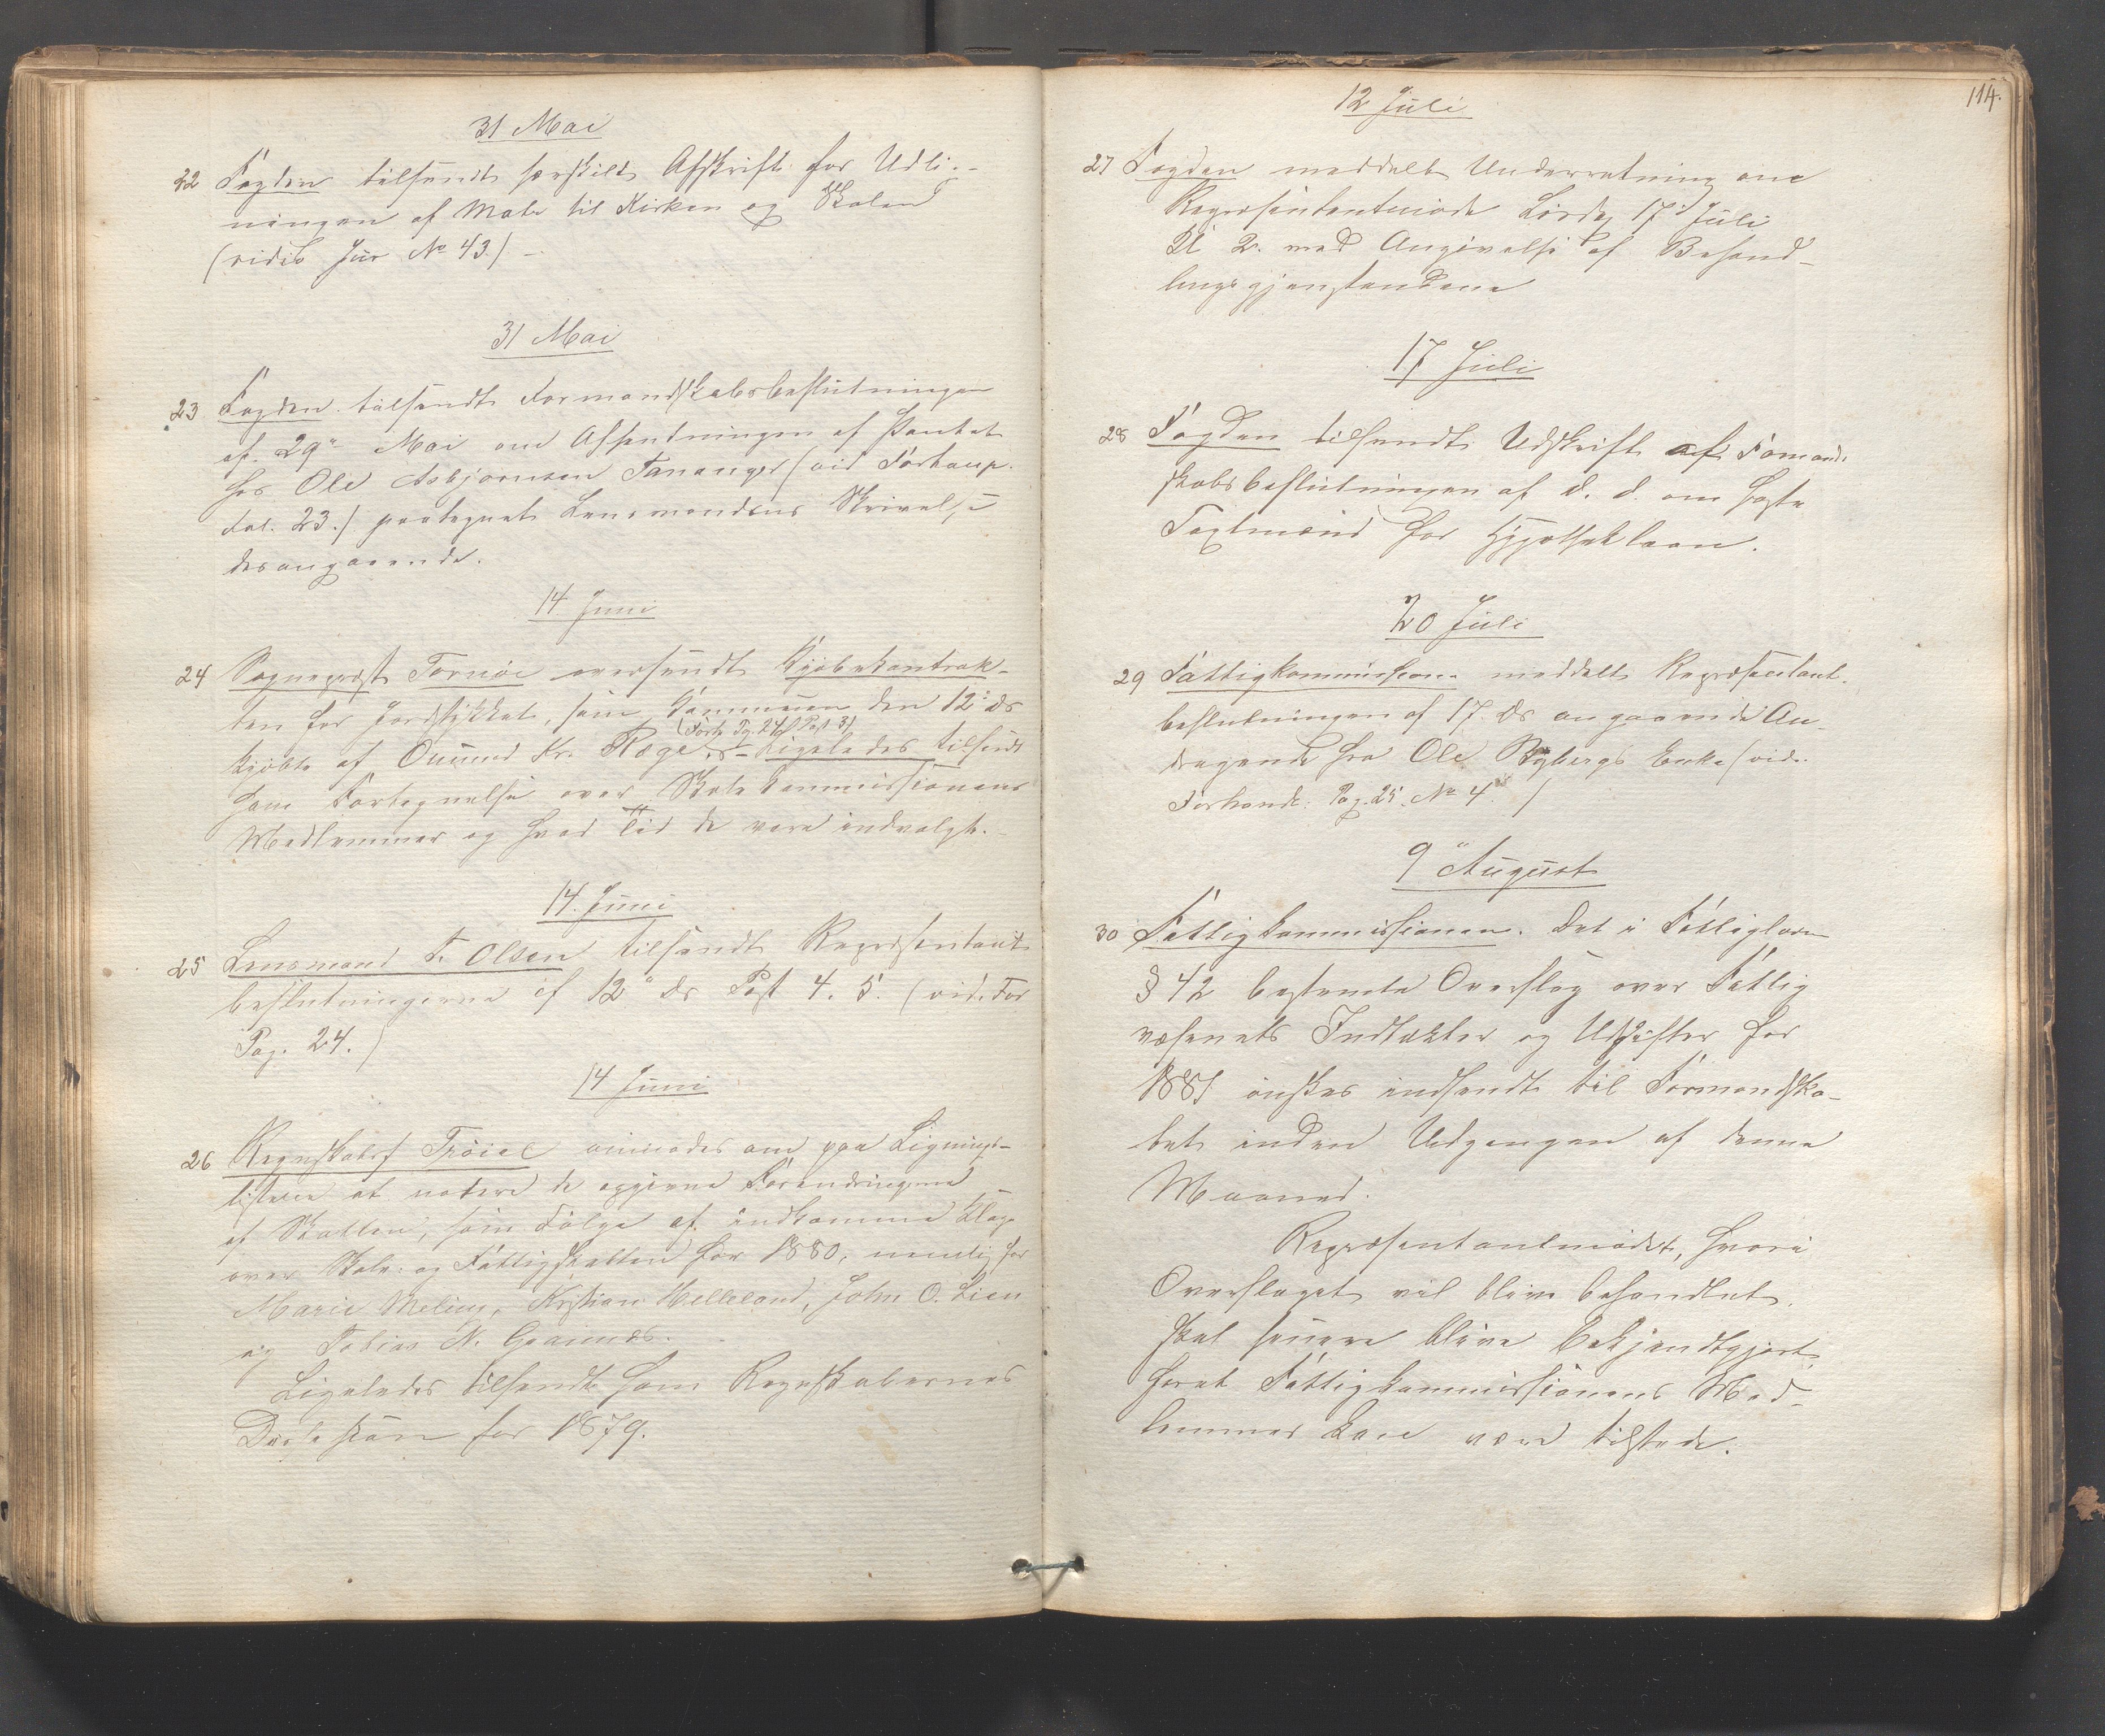 31 Mai
22 Fogden tilsendt særskilt Afskrift for Udlig-
ningen af Mate til Kirken og Skolen
(vide Jur No 43.) -
31 Mai
23 Fogden tilsendt Formandskabsbeslutningen
af 29" Mai om Afhentningen af Pantet
hos Ole Asbjørnsen Tananger (vid Forhanp.
Fol. 23.) paategnet Lensmandens Skrivelse
desangaaende.
14 Juni
24 Sognepræst Tornøe oversendt Kjøbekontrak-
ten for Jordstykket, som Kommunen den 12te ds
(Forh. Pg. 24 Post 3)
kjøbte af Ommund Kr. Ræge - Ligeledes tilsendt
ham Fortegnelse over Skolekommissionens
Medlemmer og hvad Tid de vare indvalgte.
14. Juni
25 Lensmand T. Olsen tilsendt Repræsentant
beslutningerne af 12" ds Post 4. 5. (vid. For
Pag. 24.)
14 Juni
26 Regnskabsf Trøiel anmodes om paa Lignings-
listerne at notere de opgivne Forandringerne
af Skatten, som Følge af indkomme Klage
over Skole- og Fattigskatten for 1880, nemlig for
Marie Meling, Kristian Helleland, John O. Lien
og Tobias N. Grannes.
Ligeledes tilsendt ham Regnskabernes
for 1879.
114.
12 Juli
27 Fogden meddelt Underretning om
Repræsentantmøde Lørdag 17de Juli
Kl 2. med Angivelse af Behand-
lingsgjenstandene
17 Juli
28 Fogden tilsendt Udskrift af Formand-
skabsbeslutningen af d. d. om faste
Taxtmænd for Hypotheklaan.
20 Juli
29 Fattigkommissionen meddelt Repræsentant-
beslutningen af 17 ds angaaende An-
dragende fra Ole Bybergs Enke (vide
Forhandl: Pag. 25. No 4.)
9" August
30 Fattigkommissionen. Det i Fattigloven
§ 42 bestemte Overslag over Fattig
væsenets Indtækter og Udgifter for
1881 ønskes indsendt til Formandska-
bet inden Udgangen af denne
Maaned.
Repræsentantmødet, hvori
Overslaget vil blive behandlet,
skal senere blive bekjendtgjort,
forat Fattigkommissionens Med-
lemmer kan være tilstede.